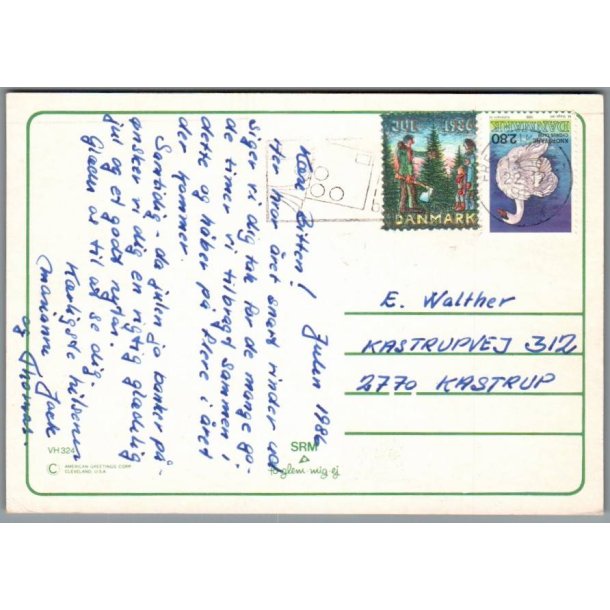 Julen 1986
Kære Bitten!
Her hvor året snart rinder ud
siger vi dig tak for de mange go-
de timer vi tilbragt sammen i
dette og håber på flere i året
der kommer.
Samtidig - da julen jo banker på -
ønsker vi dig en rigtig glædelig
jul og et godt nytår.
Glæder os til at se dig.
Kærligste hilsener
Marianne
og Thomas.
JUL 1986
DANMARK
KNOPSVANE
CYGNUS OLOR
DANMARK
2.80
E. Walther
KASTRUPVEJ 312
2770 KASTRUP
VH 324
C AMERICAN GREETINGS CORP.
CLEVELAND, U.S.A.
SRM
forglem·mig·ej